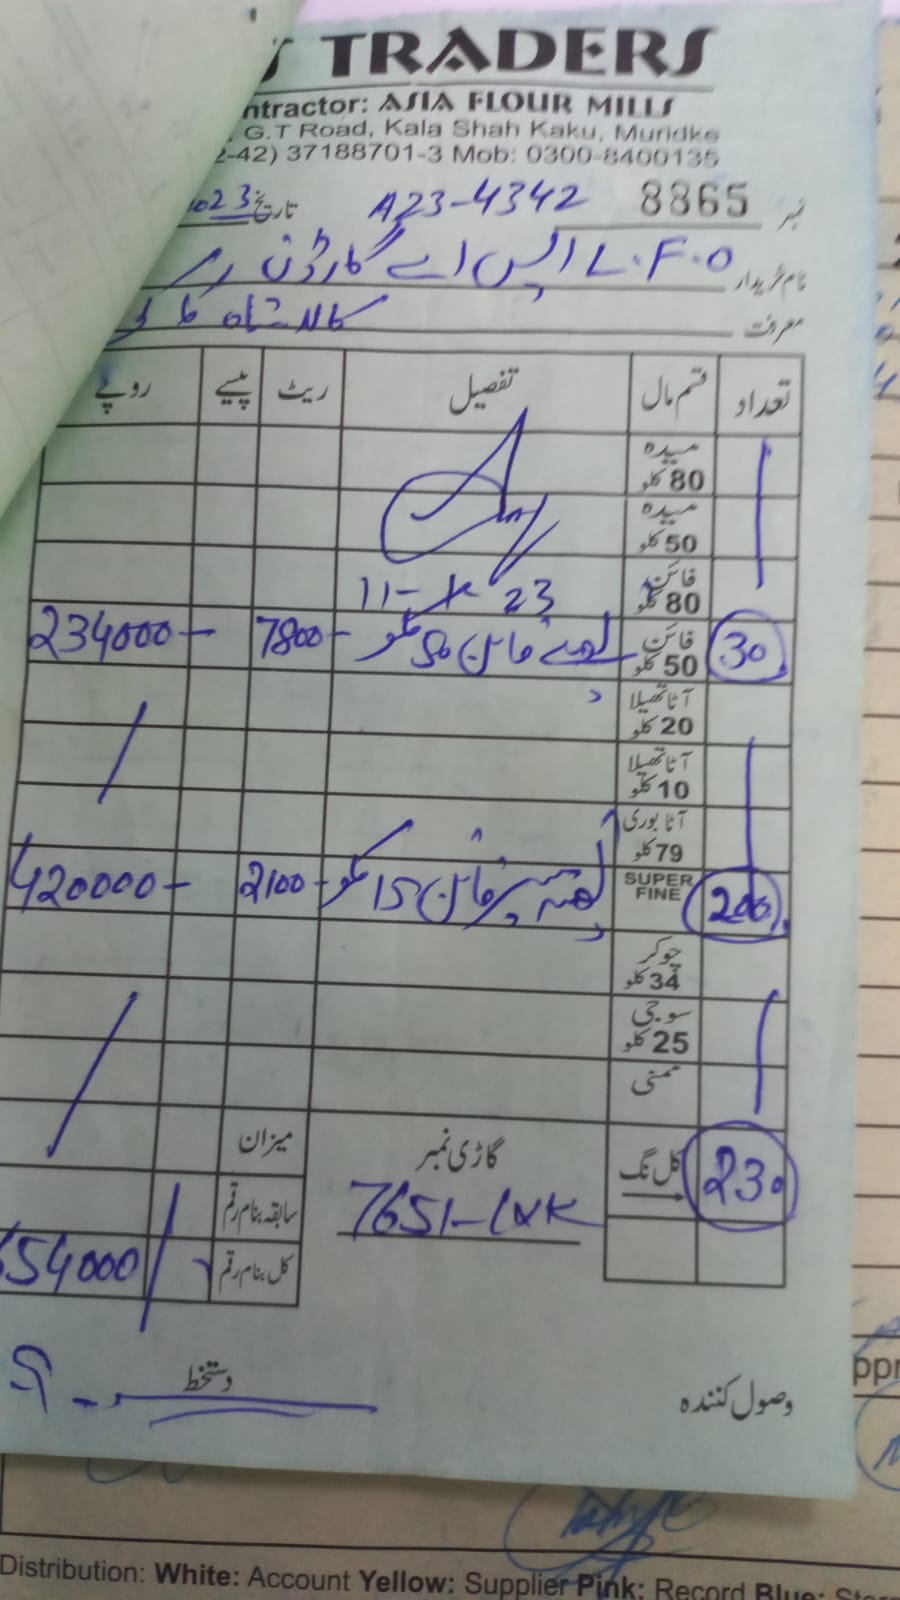 TRADERS
ntractor: ASIA FLOUR MILLS
G.T Road, Kala Shah Kaku, Muridke
2-42) 37188701-3 Mob: 0300-8400135
نمبر 8865 A23-4342 تاریخ 2023
نام خریدار L.F.O ایس اے گارڈن
معرفت کالا شاہ کا کو
تعداد قسم مال تفصیل ریٹ پیسے روپے
میدہ 80 کلو
میدہ 50 کلو
فائن 80 کلو
11-X-23
30 فائن 50 کلو فائن 50 کلو 7800- 234000-
آٹا تھیلا 20 کلو
آٹا تھیلا 10 کلو
آٹا بوری 79 کلو
200 SUPER FINE سپر فائن 15 کلو 2100- 420000-
چوکر 34 کلو
سوجی 25 کلو
ممنی
230 کل نگ گاڑی نمبر میزان
7651-LXK سابقہ بنام رقم
کل بنام رقم 654000
وصول کنندہ دستخط
Distribution: White: Account Yellow: Supplier Pink: Record Blue: